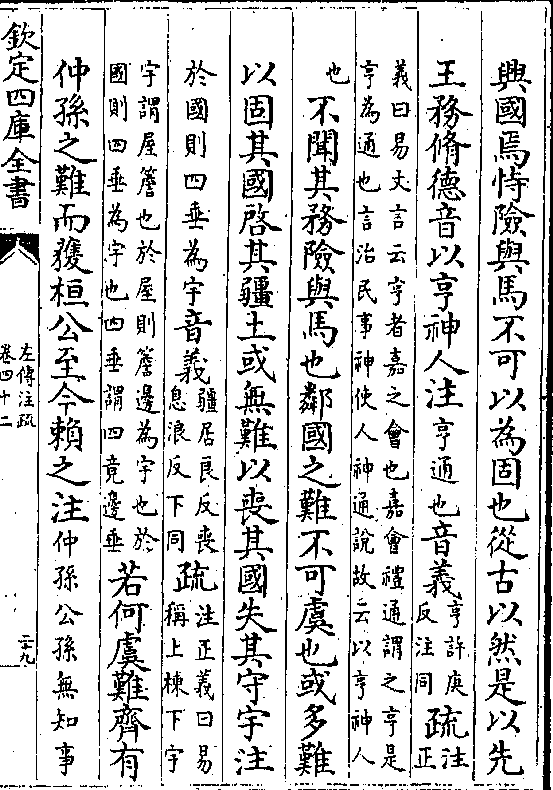 興國焉恃險與馬不可以為固也從古以然是以先
王務脩德音以亨神人注亨通也音義亨許庚反注同疏注正
義曰易文言云亨者嘉之會也嘉會禮通謂之亨是
亨為通也言治民事神使人神通說故云以亨神人
也不聞其務險與馬也鄰國之難不可虞也或多難
以固其國啓其疆土或無難以喪其國失其守宇注
於國則四垂為宇音義疆居良反喪息浪反下同疏注正義曰易稱上棟下宇
宇謂屋簷也於屋則簷邊為宇也於
國則四垂為宇也四垂謂四竟邊垂若何虞難齊有
仲孫之難而獲桓公至今賴之注仲孫公孫無知事
欽定四庫全書
左傳注疏
卷四十二
二十九